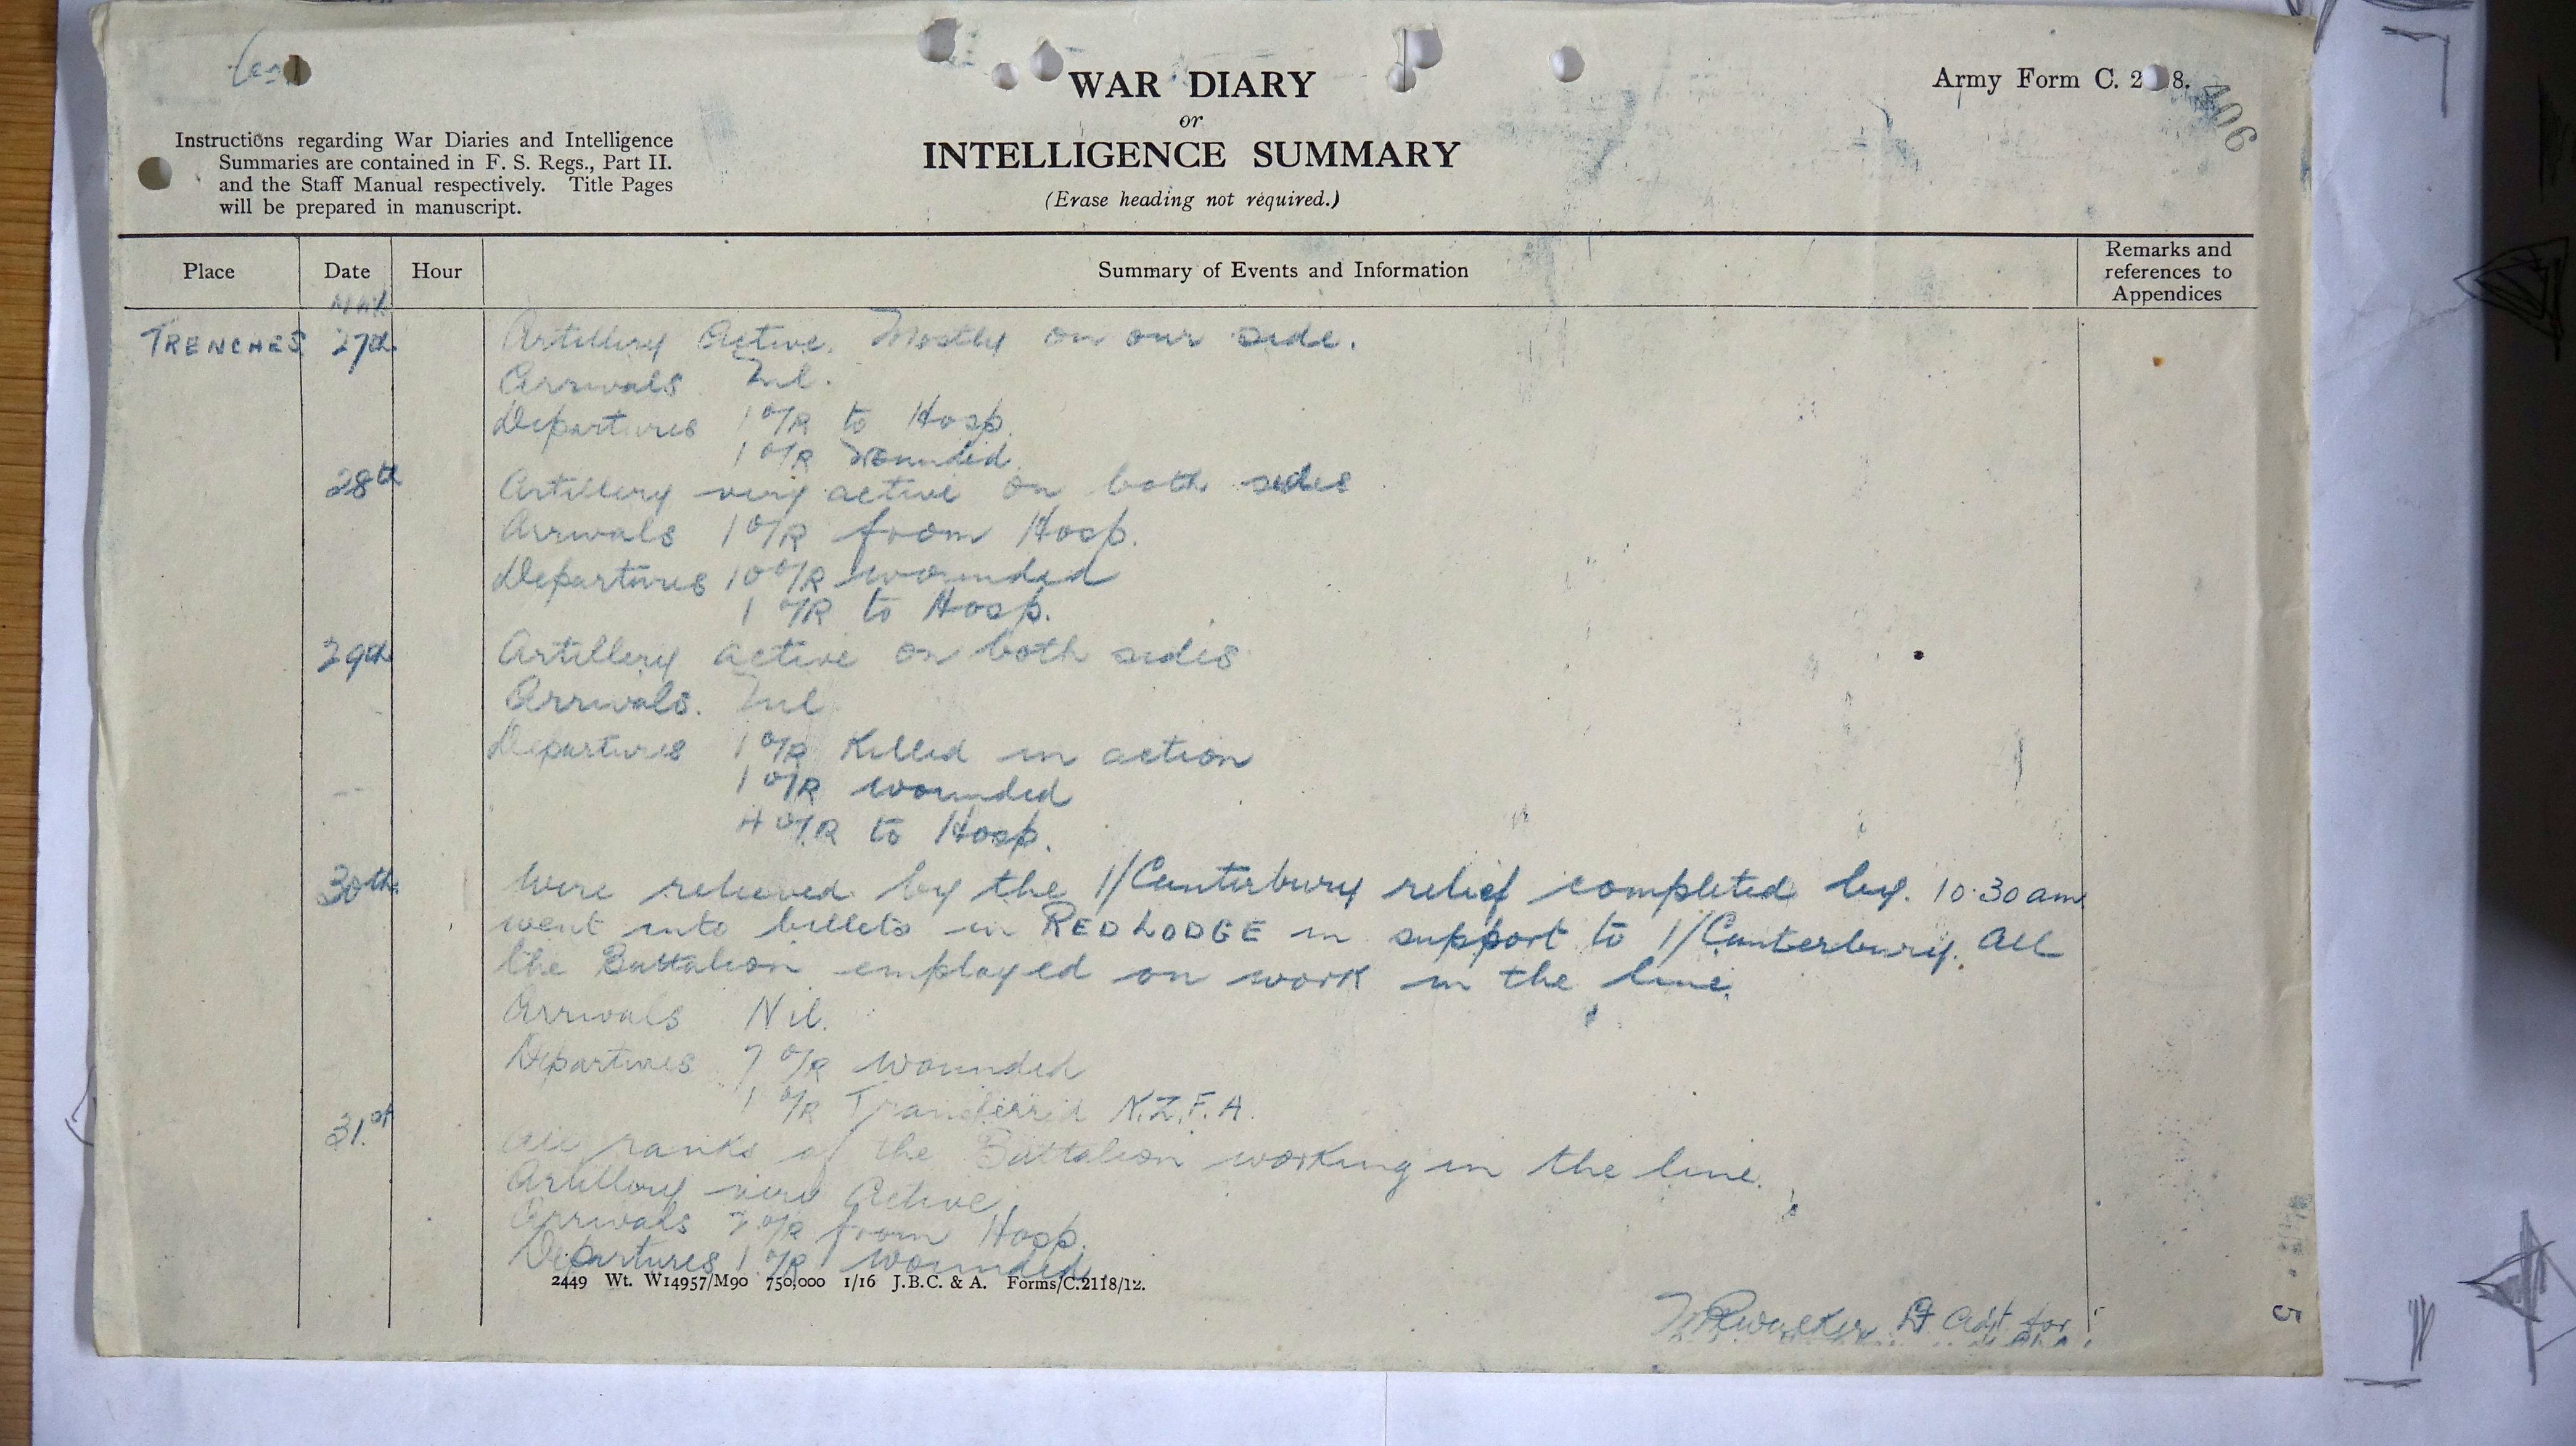 WAR DIARY
or
INTELLIGENCE SUMMARY
(Erase heading not required.)
Army Form C. 2 8.
406
Instructions regarding War Diaries and Intelligence
Summaries are contained in F. S. Regs., Part II.
and the Staff Manual respectively. Title Pages
will be prepared in manuscript.
Place Date Hour Summary of Events and Information Remarks and references to Appendices
TRENCHES 27th Artillery Active. Mostly on our side.
Arrivals Nil.
Departures 1 O/R to Hosp.
1 O/R wounded.
28th Artillery very active on both sides
Arrivals 1 O/R from Hosp.
Departures 10 O/R wounded
1 O/R to Hosp.
29th Artillery active on both sides
Arrivals. Nil
Departures 1 O/R Killed in action
1 O/R wounded
4 O/R to Hosp.
30th Were relieved by the 1/Canterbury relief completed by. 10.30 am
went into billets in RED LODGE in support to 1/Canterbury. All
the Battalion employed on work in the line.
Arrivals Nil.
Departures 7 O/R wounded
1 O/R Transferred N.Z.F.A.
31st All ranks of the Battalion working in the line.
Artillery very Active
Arrivals O/R from Hosp.
Departures 1 O/R wounded
2449 Wt. W14957/M90 750,000 1/16 J.B.C. & A. Forms/C.2118/12.
Lt Adjt for
5